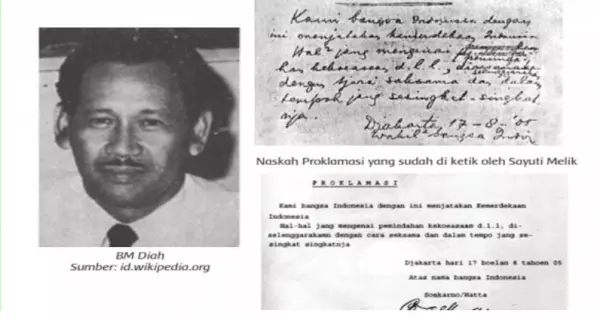 Kami bangsa Indonesia dengan
ini menjatakan kemerdekaan Indonesia
Hal² jang mengenai
han kekoeasaan d.l.l.,
dengan tjara saksama dan dalam
tempoh jang sesingkat-singkat
nja.
Djakarta 17 - 8 - '05
Wakil² bangsa Indon
Naskah Proklamasi yang sudah di ketik oleh Sayuti Melik
PROKLAMASI
Kami bangsa Indonesia dengan ini menjatakan Kemerdekaan
Indonesia
Hal-hal jang mengenai pemindahan kekoeasaan d.l.l; di-
selenggarakamn dengan cara seksama dan dalam tempo jang se-
singkat singkatnja
Djakarta hari 17 boelan 8 tahoen 05
Atas nama bangsa Indonesia
Soekarno/Hatta
BM Diah
Sumber: id.wikipedia.org